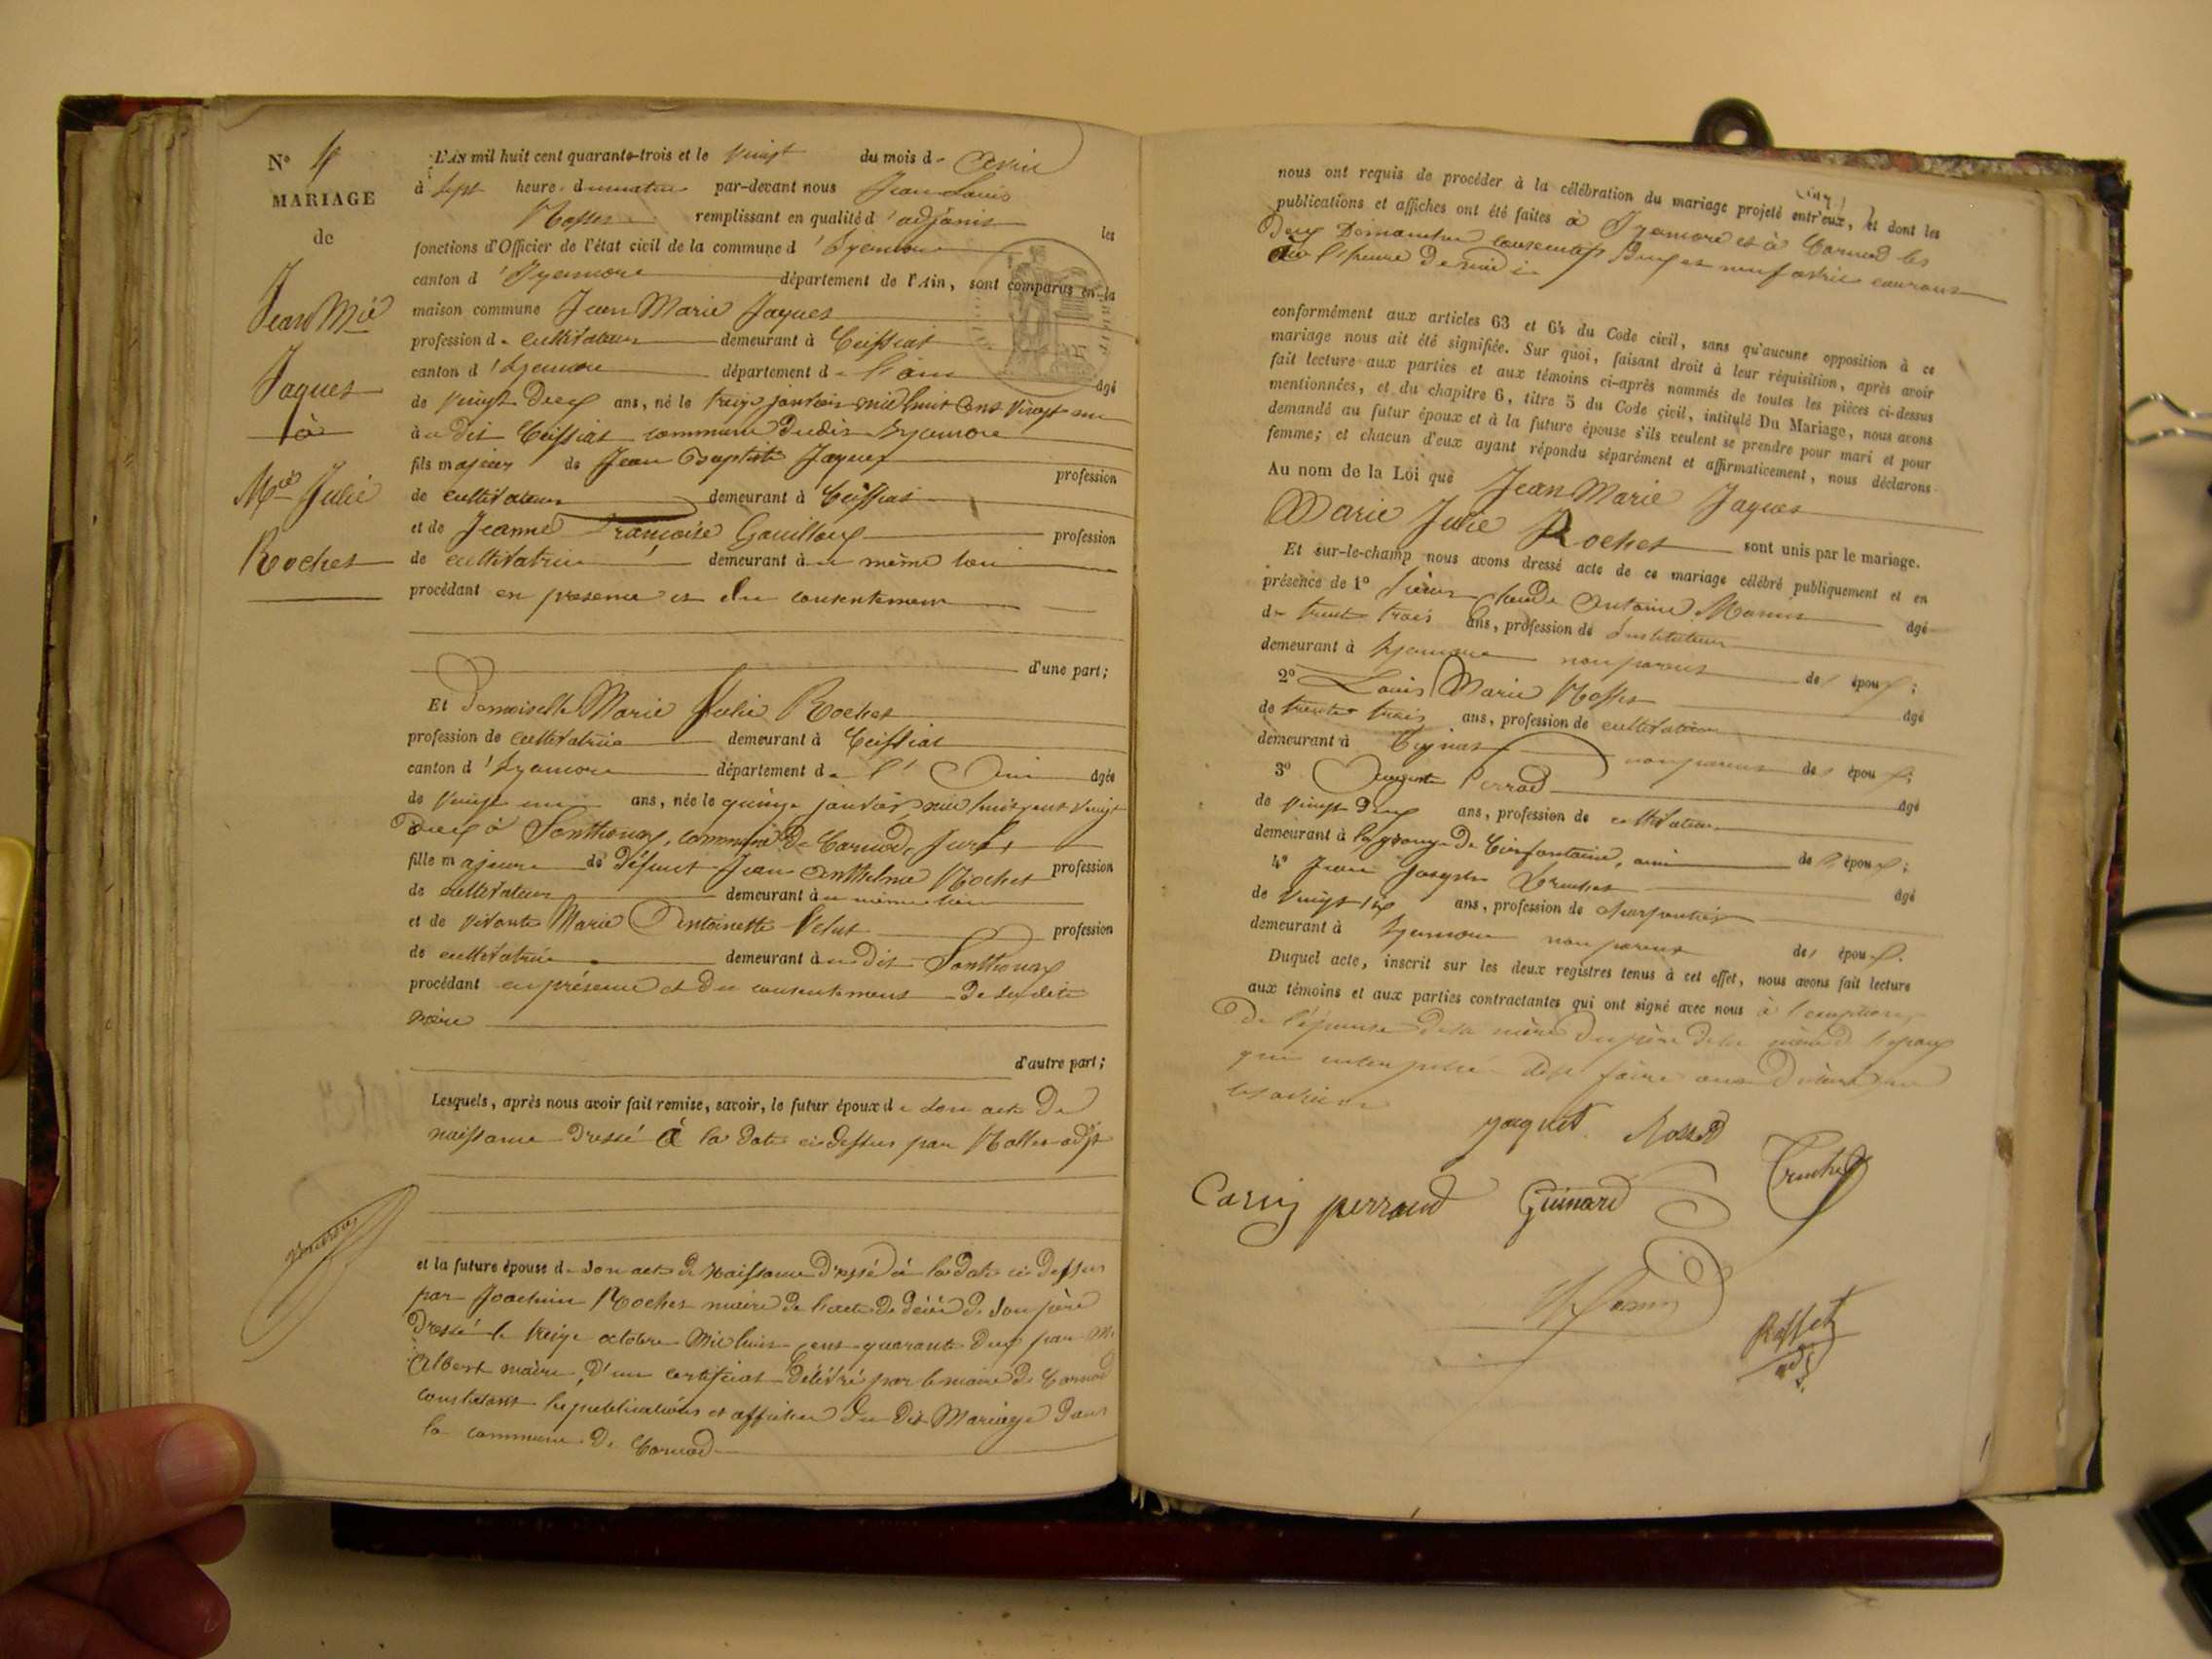 N° 4
MARIAGE
de
Jean Mie
Jaques
à
Mie Julie
Rochet
L'AN mil huit cent quarante-trois et le vingt du mois d'avril
à sept heures du matin par-devant nous Jean Louis
Rosset remplissant en qualité d'adjoint les
fonctions d'Officier de l'état civil de la commune d'Izernore
canton d'Izernore département de l'Ain, sont comparus en la
maison commune Jean Marie Jaques
profession de cultivateur demeurant à Ceissiat
canton d'Izernore département de l'ain âgé
de vingt deux ans, né le treize janvier mil huit cent vingt un
au dit Ceissiat commune dudit Izernore
fils majeur de Jean Baptiste Jaques profession
de cultivateur demeurant à Ceissiat
et de Jeanne Françoise Gouilloux profession
de cultivatrice demeurant au même lieu
procédant en présence et du consentement
d'une part;
Et Demoiselle Marie Julie Rochet
profession de cultivatrice demeurant à Ceissiat
canton d'Izernore département de l'Ain âgée
de vingt un ans, née le quinze janvier mil huit cent vingt
deux à Sonthonax, commune de Cornod, Jura
fille majeure de défunt Jean Anthelme Rochet profession
de cultivateur demeurant au même lieu
et de vivante Marie Antoinette Velut profession
de cultivatrice demeurant au dit Sonthonax
procédant en présence et du consentement de sa dite
mère
d'autre part;
Lesquels, après nous avoir fait remise, savoir, le futur époux de son acte de
naissance dressé à la date ci dessus par Rosset adjt
et la future épouse de son acte de naissance dressé à la date ci dessus
par Joachim Rochet maire de l'acte de décès de son père
dressé le treize octobre mil huit cent quarante deux par Mr
Albert maire, d'un certificat délivré par le maire de Cornod
constatant les publications et affiches du dit Mariage dans
la commune de Cornod
nous ont requis de procéder à la célébration du mariage projeté entr'eux, et dont les
publications et affiches ont été faites à Izernore et à Cornod les
deux Dimanches consécutifs deux et neuf avril courant
à l'heure de midi
conformément aux articles 63 et 64 du Code civil, sans qu'aucune opposition à ce
mariage nous ait été signifiée. Sur quoi, faisant droit à leur réquisition, après avoir
fait lecture aux parties et aux témoins ci-après nommés de toutes les pièces ci-dessus
mentionnées, et du chapitre 6, titre 5 du Code civil, intitulé Du Mariage, nous avons
demandé au futur époux et à la future épouse s'ils veulent se prendre pour mari et pour
femme; et chacun d'eux ayant répondu séparément et affirmativement, nous déclarons
Au nom de la Loi que Jean Marie Jaques
Marie Julie Rochet sont unis par le mariage.
Et sur-le-champ nous avons dressé acte de ce mariage célébré publiquement et en
présence de 1° Claude Antoine âgé
de trente trois ans, profession de Instituteur
demeurant à Izernore non parent des époux;
2° Louis Marie Rosset âgé
de trente trois ans, profession de cultivateur
demeurant à non parent des époux;
3° Auguste Perrod âgé
de vingt deux ans, profession de cultivateur
demeurant à la grange de Cirfontaine, ami des époux;
4° Jean Joseph Truchet âgé
de vingt six ans, profession de charpentier
demeurant à Izernore non parent des époux.
Duquel acte, inscrit sur les deux registres tenus à cet effet, nous avons fait lecture
aux témoins et aux parties contractantes qui ont signé avec nous à l'exception
de l'épouse de sa mère du père de la mère de l'époux
qui interpellés de le faire ont déclaré ne
le savoir
jaquet Rosset
Truchet
perraud Guinard
Rosset
adj.